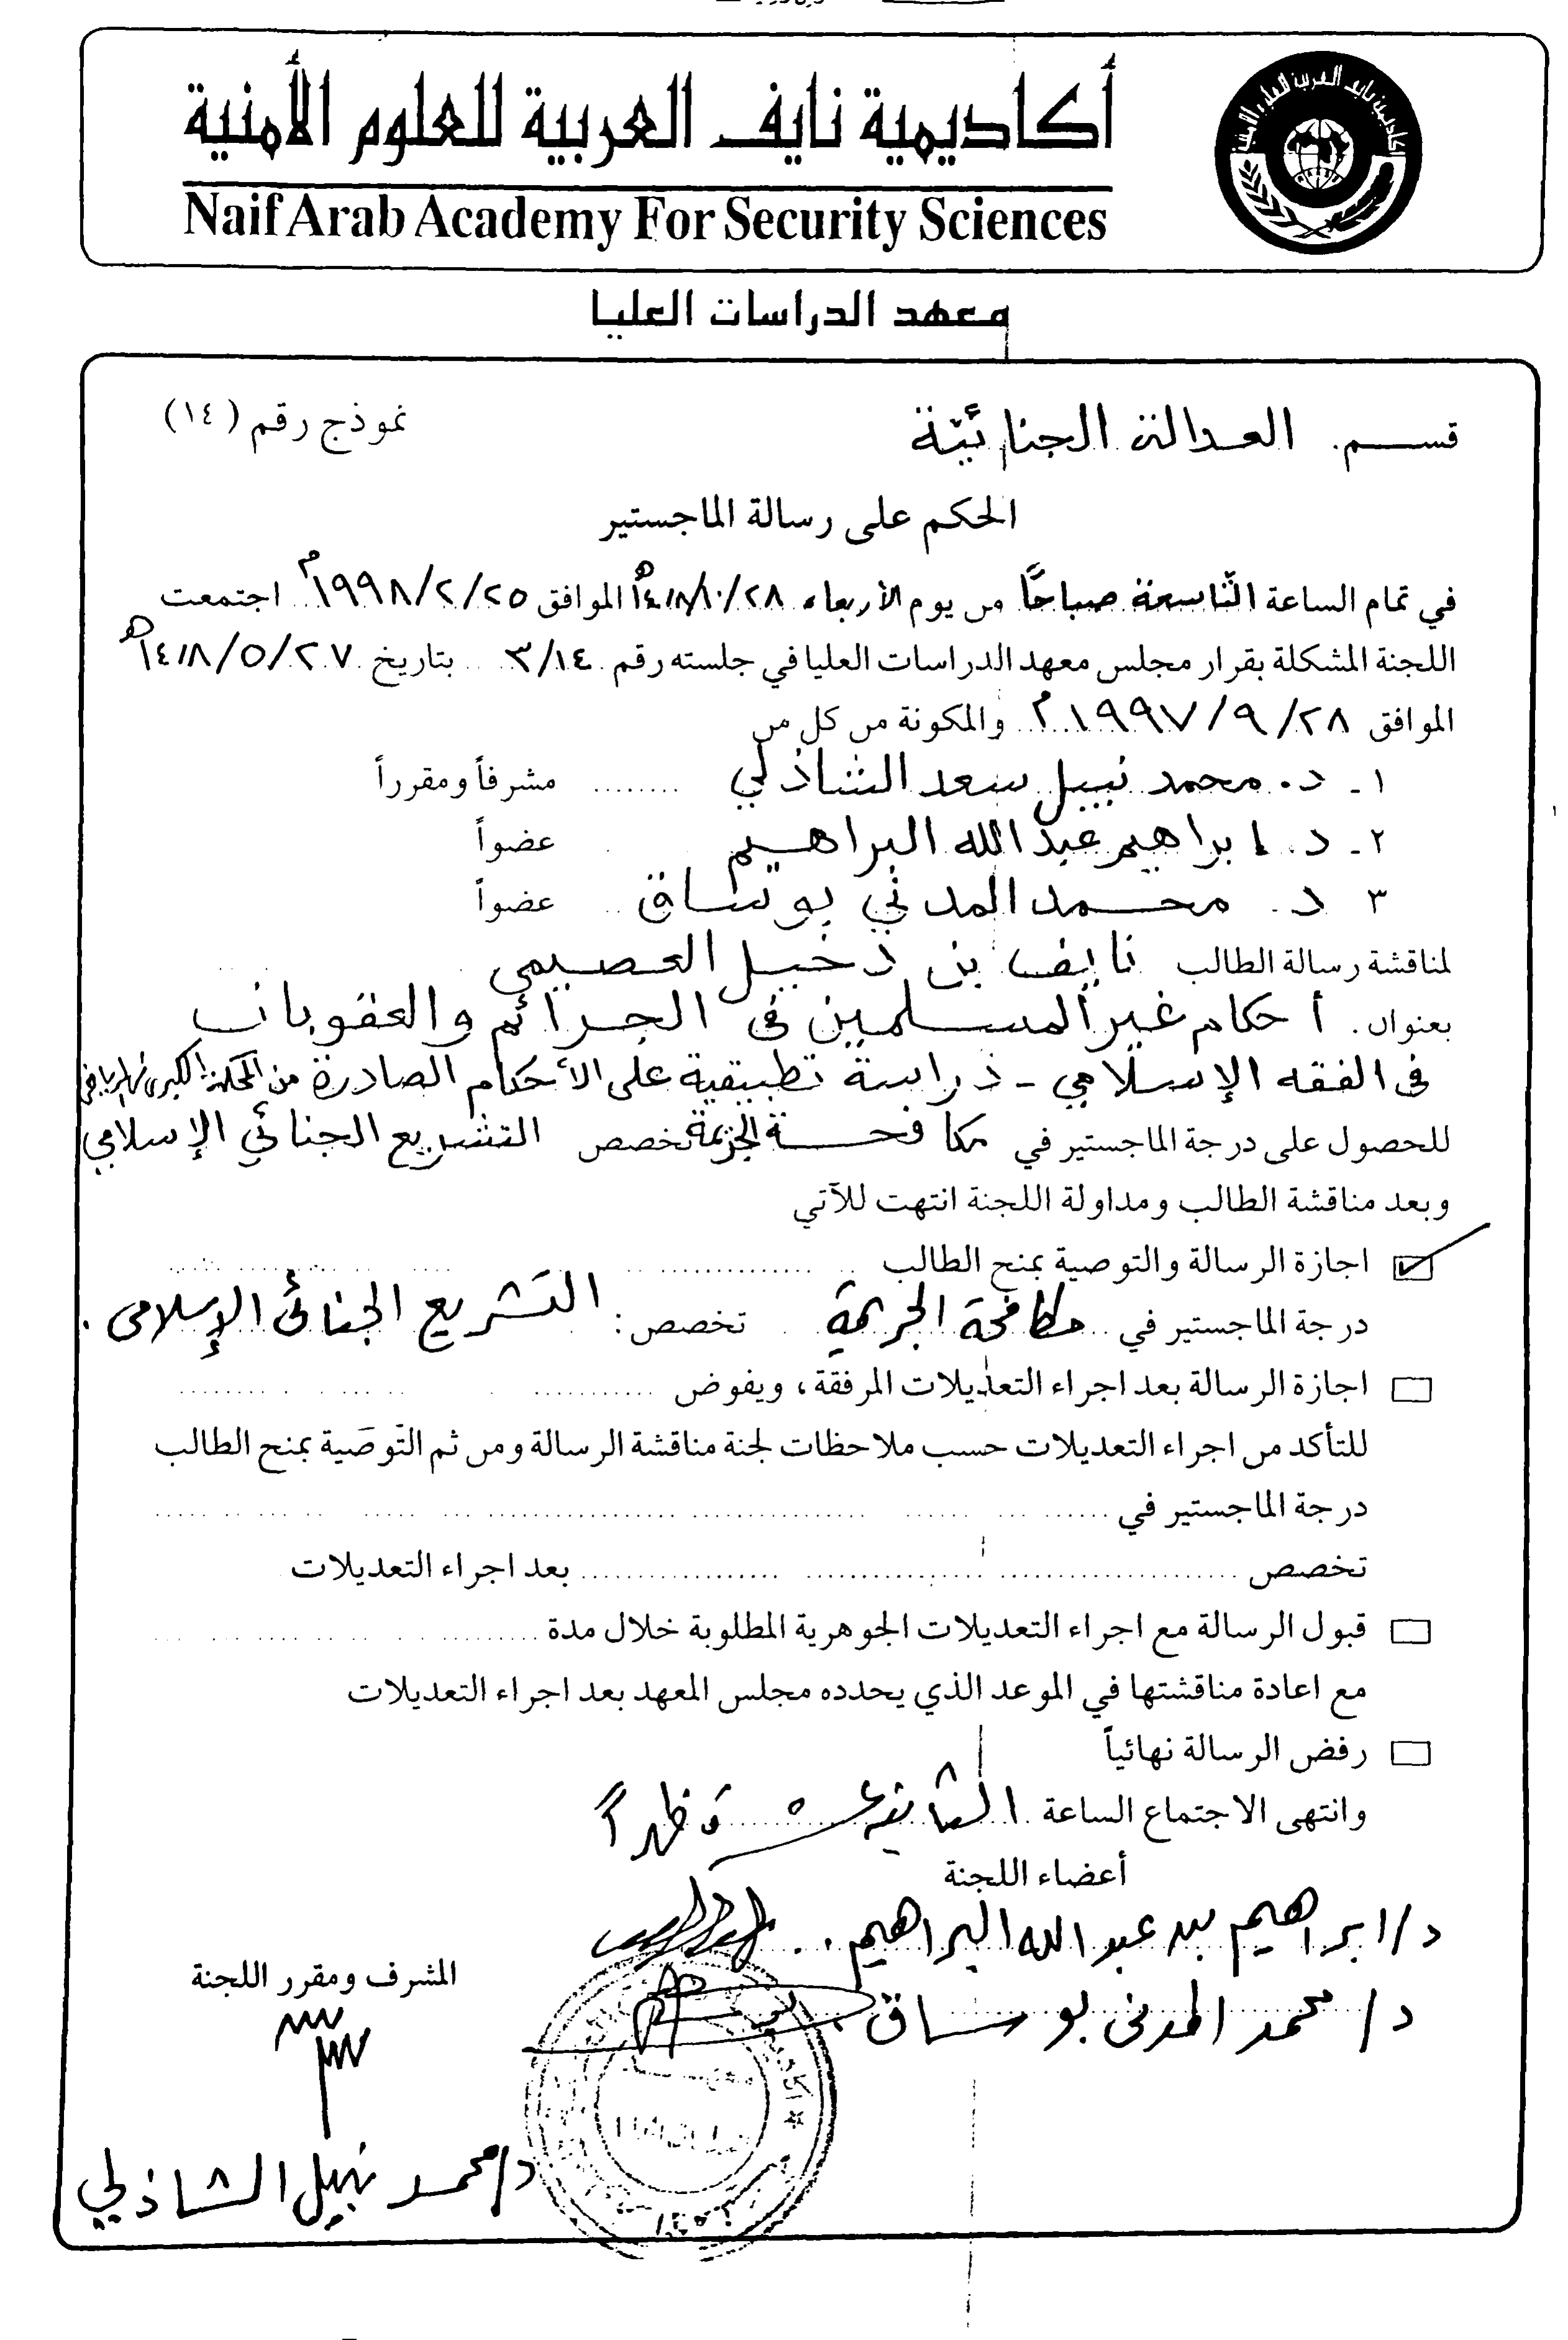 أكاديمية نايف العربية للعلوم الأمنية
Naif Arab Academy For Security Sciences
أكاديمية نايف العربية للعلوم الأمنية
معهد الدراسات العليا
نموذج رقم (١٤)
قسم العدالة الجنائية
الحكم على رسالة الماجستير
في تمام الساعة التاسعة صباحًا من يوم الأربعاء ١٤١٨/١٠/٢٨هـ الموافق ١٩٩٨/٢/٢٥م اجتمعت
اللجنة المشكلة بقرار مجلس معهد الدراسات العليا في جلسته رقم ٣/١٤ بتاريخ ١٤١٨/٥/٢٧هـ
الموافق ١٩٩٧/٩/٢٨م والمكونة من كل من
١ ـ د. محمد نبيل سعد الشاذلي ........ مشرفاً ومقرراً
٢ ـ د. ابراهيم عبدالله البراهيم عضواً
٣ د. محمد المدني بوساق عضواً
لمناقشة رسالة الطالب نايف بن دخيل العصيمي
بعنوان. أحكام غير المسلمين في الجرائم والعقوبات
في الفقه الإسلامي - دراسة تطبيقية على الأحكام الصادرة من المحكمة الكبرى بالرياض
للحصول على درجة الماجستير في مكافحة الجريمة تخصص التشريع الجنائي الإسلامي
وبعد مناقشة الطالب ومداولة اللجنة انتهت للآتي
☑ اجازة الرسالة والتوصية بمنح الطالب
درجة الماجستير في مكافحة الجريمة تخصص : التشريع الجنائى الإسلامى .
□ اجازة الرسالة بعد اجراء التعديلات المرفقة، ويفوض
للتأكد من اجراء التعديلات حسب ملاحظات لجنة مناقشة الرسالة ومن ثم التوصية بمنح الطالب
درجة الماجستير في
تخصص بعد اجراء التعديلات
□ قبول الرسالة مع اجراء التعديلات الجوهرية المطلوبة خلال مدة
مع اعادة مناقشتها في الموعد الذي يحدده مجلس المعهد بعد اجراء التعديلات
□ رفض الرسالة نهائياً
وانتهى الاجتماع الساعة الثانية عشرة ظهراً
أعضاء اللجنة
د/ ابراهيم بن عبد الله البراهيم ..
المشرف ومقرر اللجنة
د/ محمد المدنى بوساق
د/محمد نبيل الشاذلي